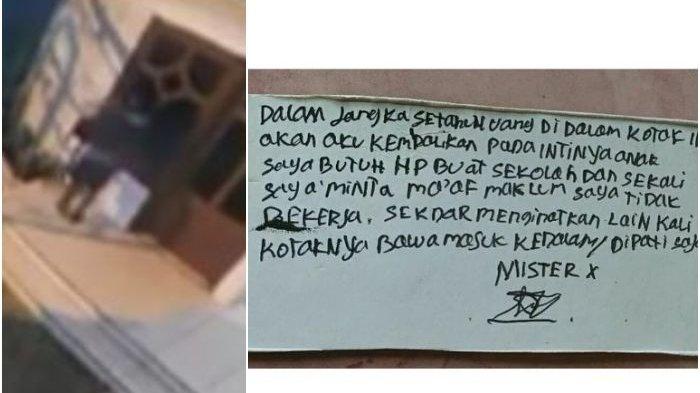 DALAM JANGKA SETAHUN UANG DI DALAM KOTAK
AKAN AKU KEMBALIKAN PADA INTINYA ANAK
SAYA BUTUH HP BUAT SEKOLAH DAN SEKALI
SAYA MINTA MA'AF MAKLUM SAYA TIDAK
BEKERJA. SEKDAR MENGINATKAN LAIN KALI
KOTAKNYA BAWA MASUK KEDALAM/
MISTER X